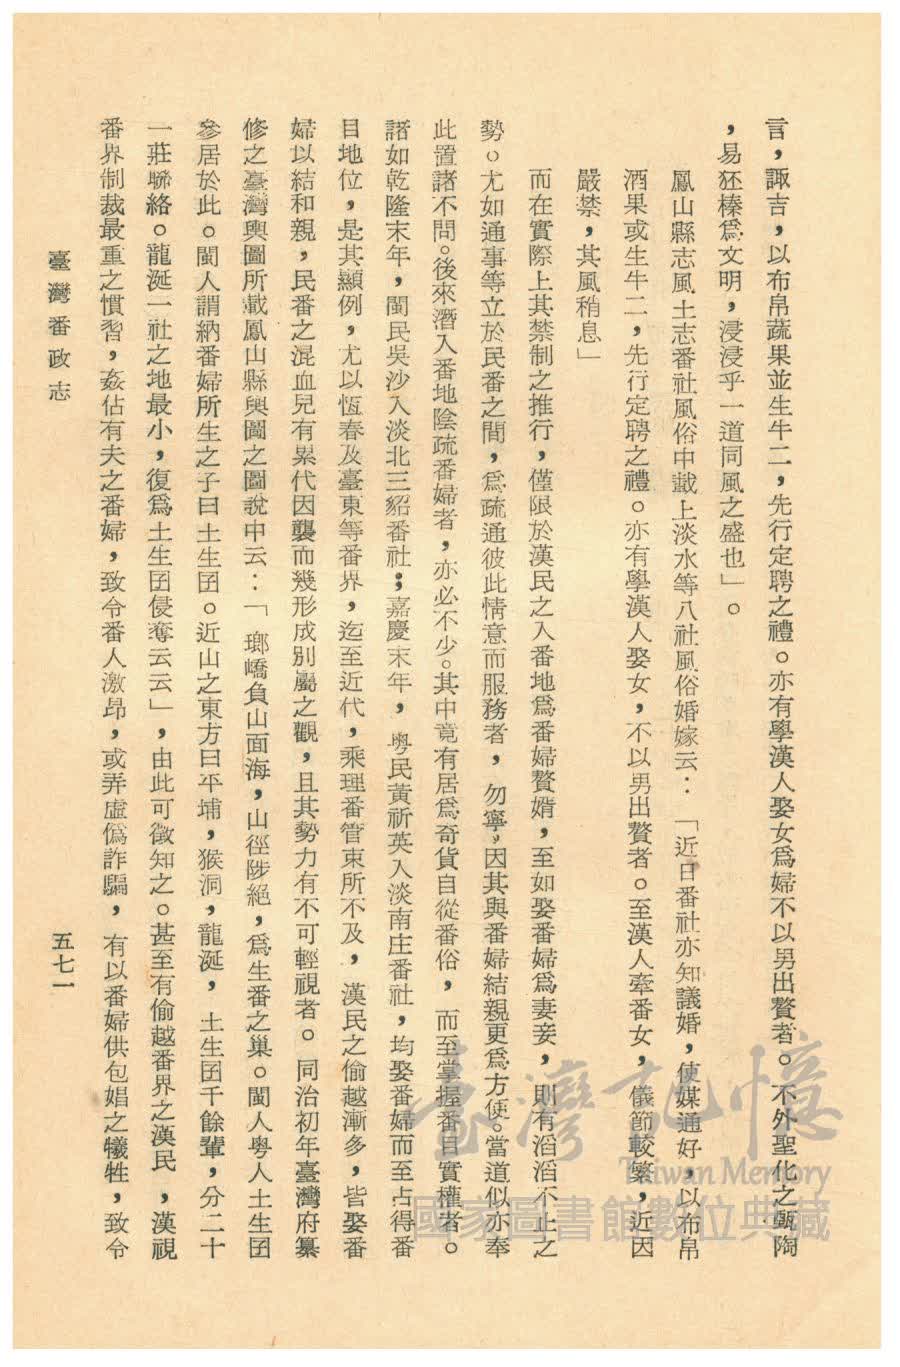 言，諏吉，以布帛蔬果並生牛二，先行定聘之禮。亦有學漢人娶女爲婦不以男出贅者。不外聖化之甄陶
，易狉榛爲文明，浸浸乎一道同風之盛也」。
鳳山縣志風土志番社風俗中載上淡水等八社風俗婚嫁云：「近日番社亦知議婚，使媒通好，以布帛
酒果或生牛二，先行定聘之禮。亦有學漢人娶女，不以男出贅者。至漢人牽番女，儀節較繁，近因
嚴禁，其風稍息」
而在實際上其禁制之推行，僅限於漢民之入番地爲番婦贅婿，至如娶番婦爲妻妾，則有滔滔不止之
勢。尤如通事等立於民番之間，爲疏通彼此情意而服務者，勿寧，因其與番婦結親更爲方便。當道似亦奉
此置諸不問。後來潛入番地陰疏番婦者，亦必不少。其中竟有居爲奇貨自從番俗，而至掌握番目實權者。
諸如乾隆末年，閩民吳沙入淡北三貂番社；嘉慶末年，粵民黃祈英入淡南庄番社，均娶番婦而至占得番
目地位，是其顯例，尤以恆春及臺東等番界，迄至近代，乘理番管束所不及，漢民之偷越漸多，皆娶番
婦以結和親，民番之混血兒有累代因襲而幾形成別屬之觀，且其勢力有不可輕視者。同治初年臺灣府纂
修之臺灣輿圖所載鳳山縣輿圖之圖說中云：「瑯嶠負山面海，山徑陟絕，爲生番之巢。閩人粵人土生囝
參居於此。閩人謂納番婦所生之子曰土生囝。近山之東方曰平埔，猴洞，龍涎，土生囝千餘輩，分二十
一莊聯絡。龍涎一社之地最小，復爲土生囝侵奪云云」，由此可徵知之。甚至有偷越番界之漢民，漢視
番界制裁最重之慣習，姦佔有夫之番婦，致令番人激昂，或弄虛僞詐騙，有以番婦供包娼之犧牲，致令
臺灣番政志
五七一
臺灣記憶
Taiwan Memory
國家圖書館數位典藏